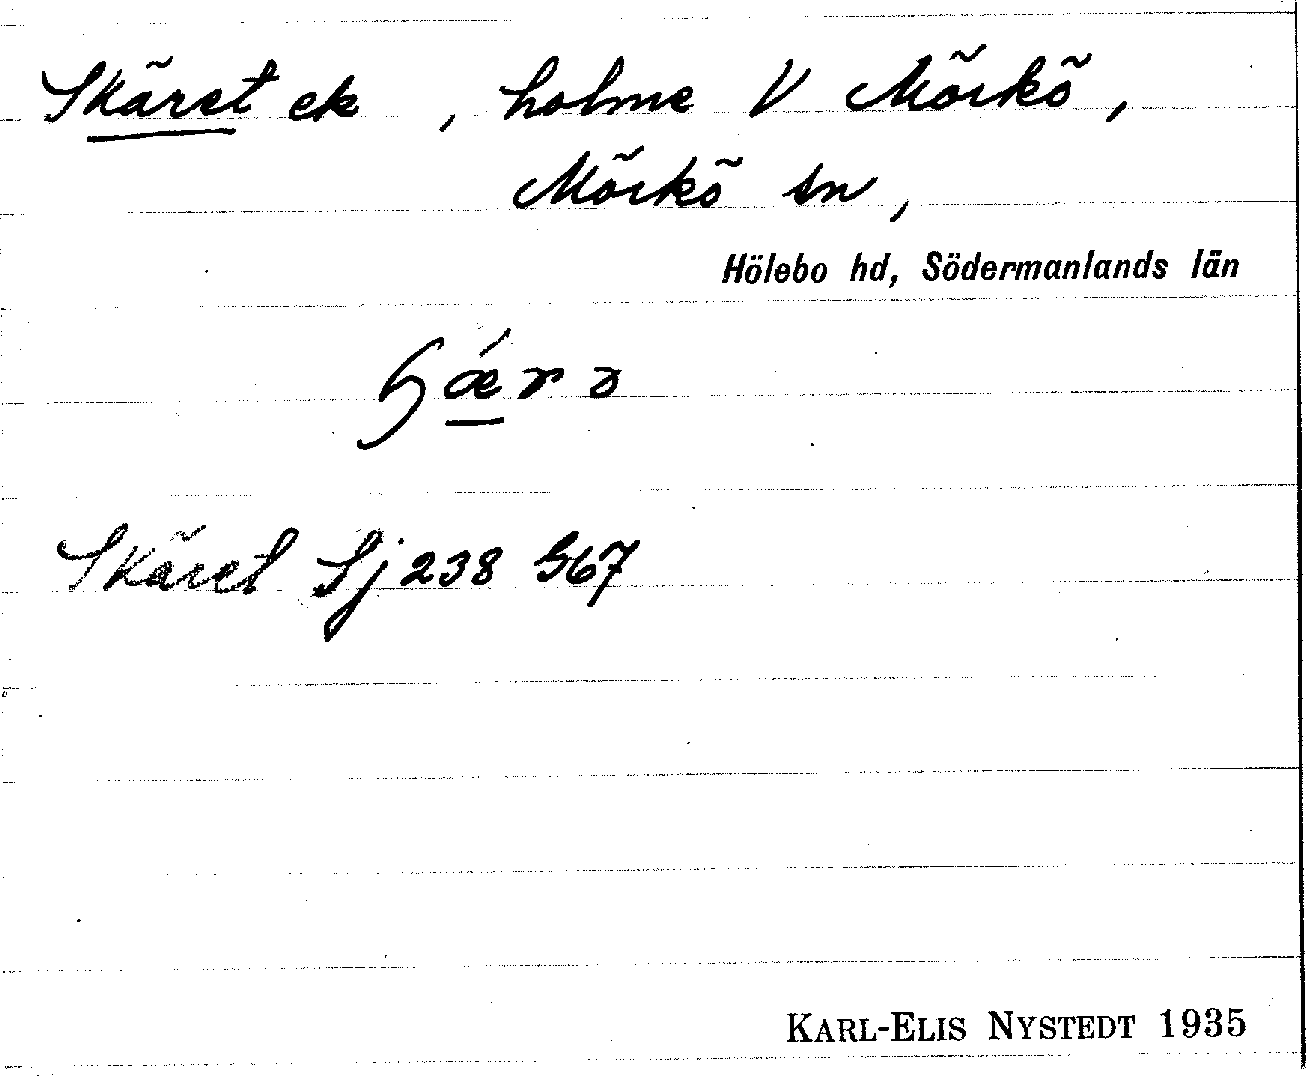 Skäret ek , holme V Mörkö,
Mörkö sn,
Hölebo hd, Södermanlands län
Skäret Sj 238 G67
KARL-ELIS NYSTEDT 1935